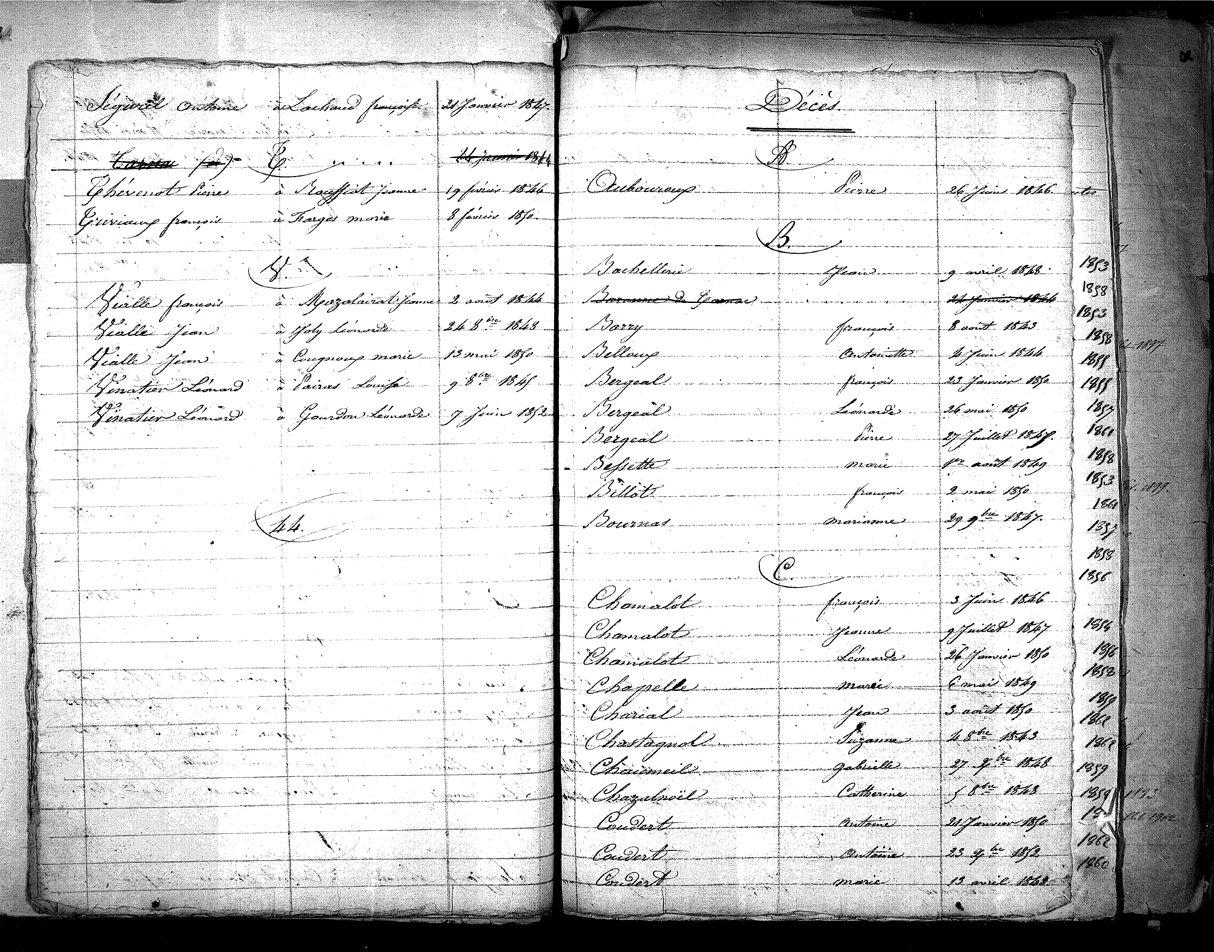 Ségurel Antoine à Lachaud françoise 21 Janvier 1847.
T. 24 Janvier 1844
Thévenot Pierre à Jeanne 19 février 1846
Triviaux françois à Farges marie 8 février 1850
V
Vialle françois à Mazaleirat Jeanne 2 août 1844
Vialle Jean à Léonarde 24 8bre 1843
Vialle Jean à Cougnoux marie 13 mai 1850
Vinatier Léonard à Pairas Louise 9 8bre 1845
Vinatier Léonard à Gourdon Léonarde 7 Juin 1852
44.
Décès.
Aubouroux Pierre 26 Juin 1846
B.
Bachellerie Jean 9 avril 1848
Baronne de 24 Janvier 1844
Barry françois 8 août 1843
Belloux Antoinette 4 Juin 1844
Bergeal françois 23 Janvier 1850
Bergeal Léonarde 26 mai 1850
Bergeal Pierre 27 Juillet 1845.
Bessette marie 1er août 1849
Billot françois 2 mai 1850
Bournas marianne 29 9bre 1847.
C
Chamalot françois 3 Juin 1846
Chamalot Jeanne 9 Juillet 1847
Chamalot Léonarde 26 Janvier 1850
Chapelle marie 6 mai 1849
Charial Jean 3 août 1850
Chastagnol Suzanne 4 8bre 1843
Chaumeil Gabrielle 27 9bre 1848
Chazalnoël Catherine 5 8bre 1843
Coudert Antoine 21 Janvier 1850
Coudert Antoine 23 9bre 1852
Coudert marie 13 avril 1843
1853
1858
1853
1858
1855
1855
1857
1861
1858
1853
1861
1857
1858
1856
1854
1856
1858
1859
1862
1862
1859
1859
1862
1860